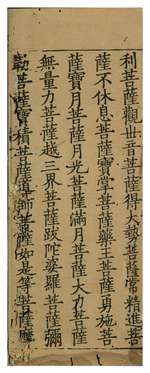 利菩薩觀世音菩薩得大勢菩薩常精進菩
薩不休息菩薩寶掌菩薩藥王菩薩勇施菩
薩寶月菩薩月光菩薩滿月菩薩大力菩薩
無量力菩薩越三界菩薩跋陀婆羅菩薩彌
勒菩薩寶積菩薩導師菩薩如是等菩薩摩